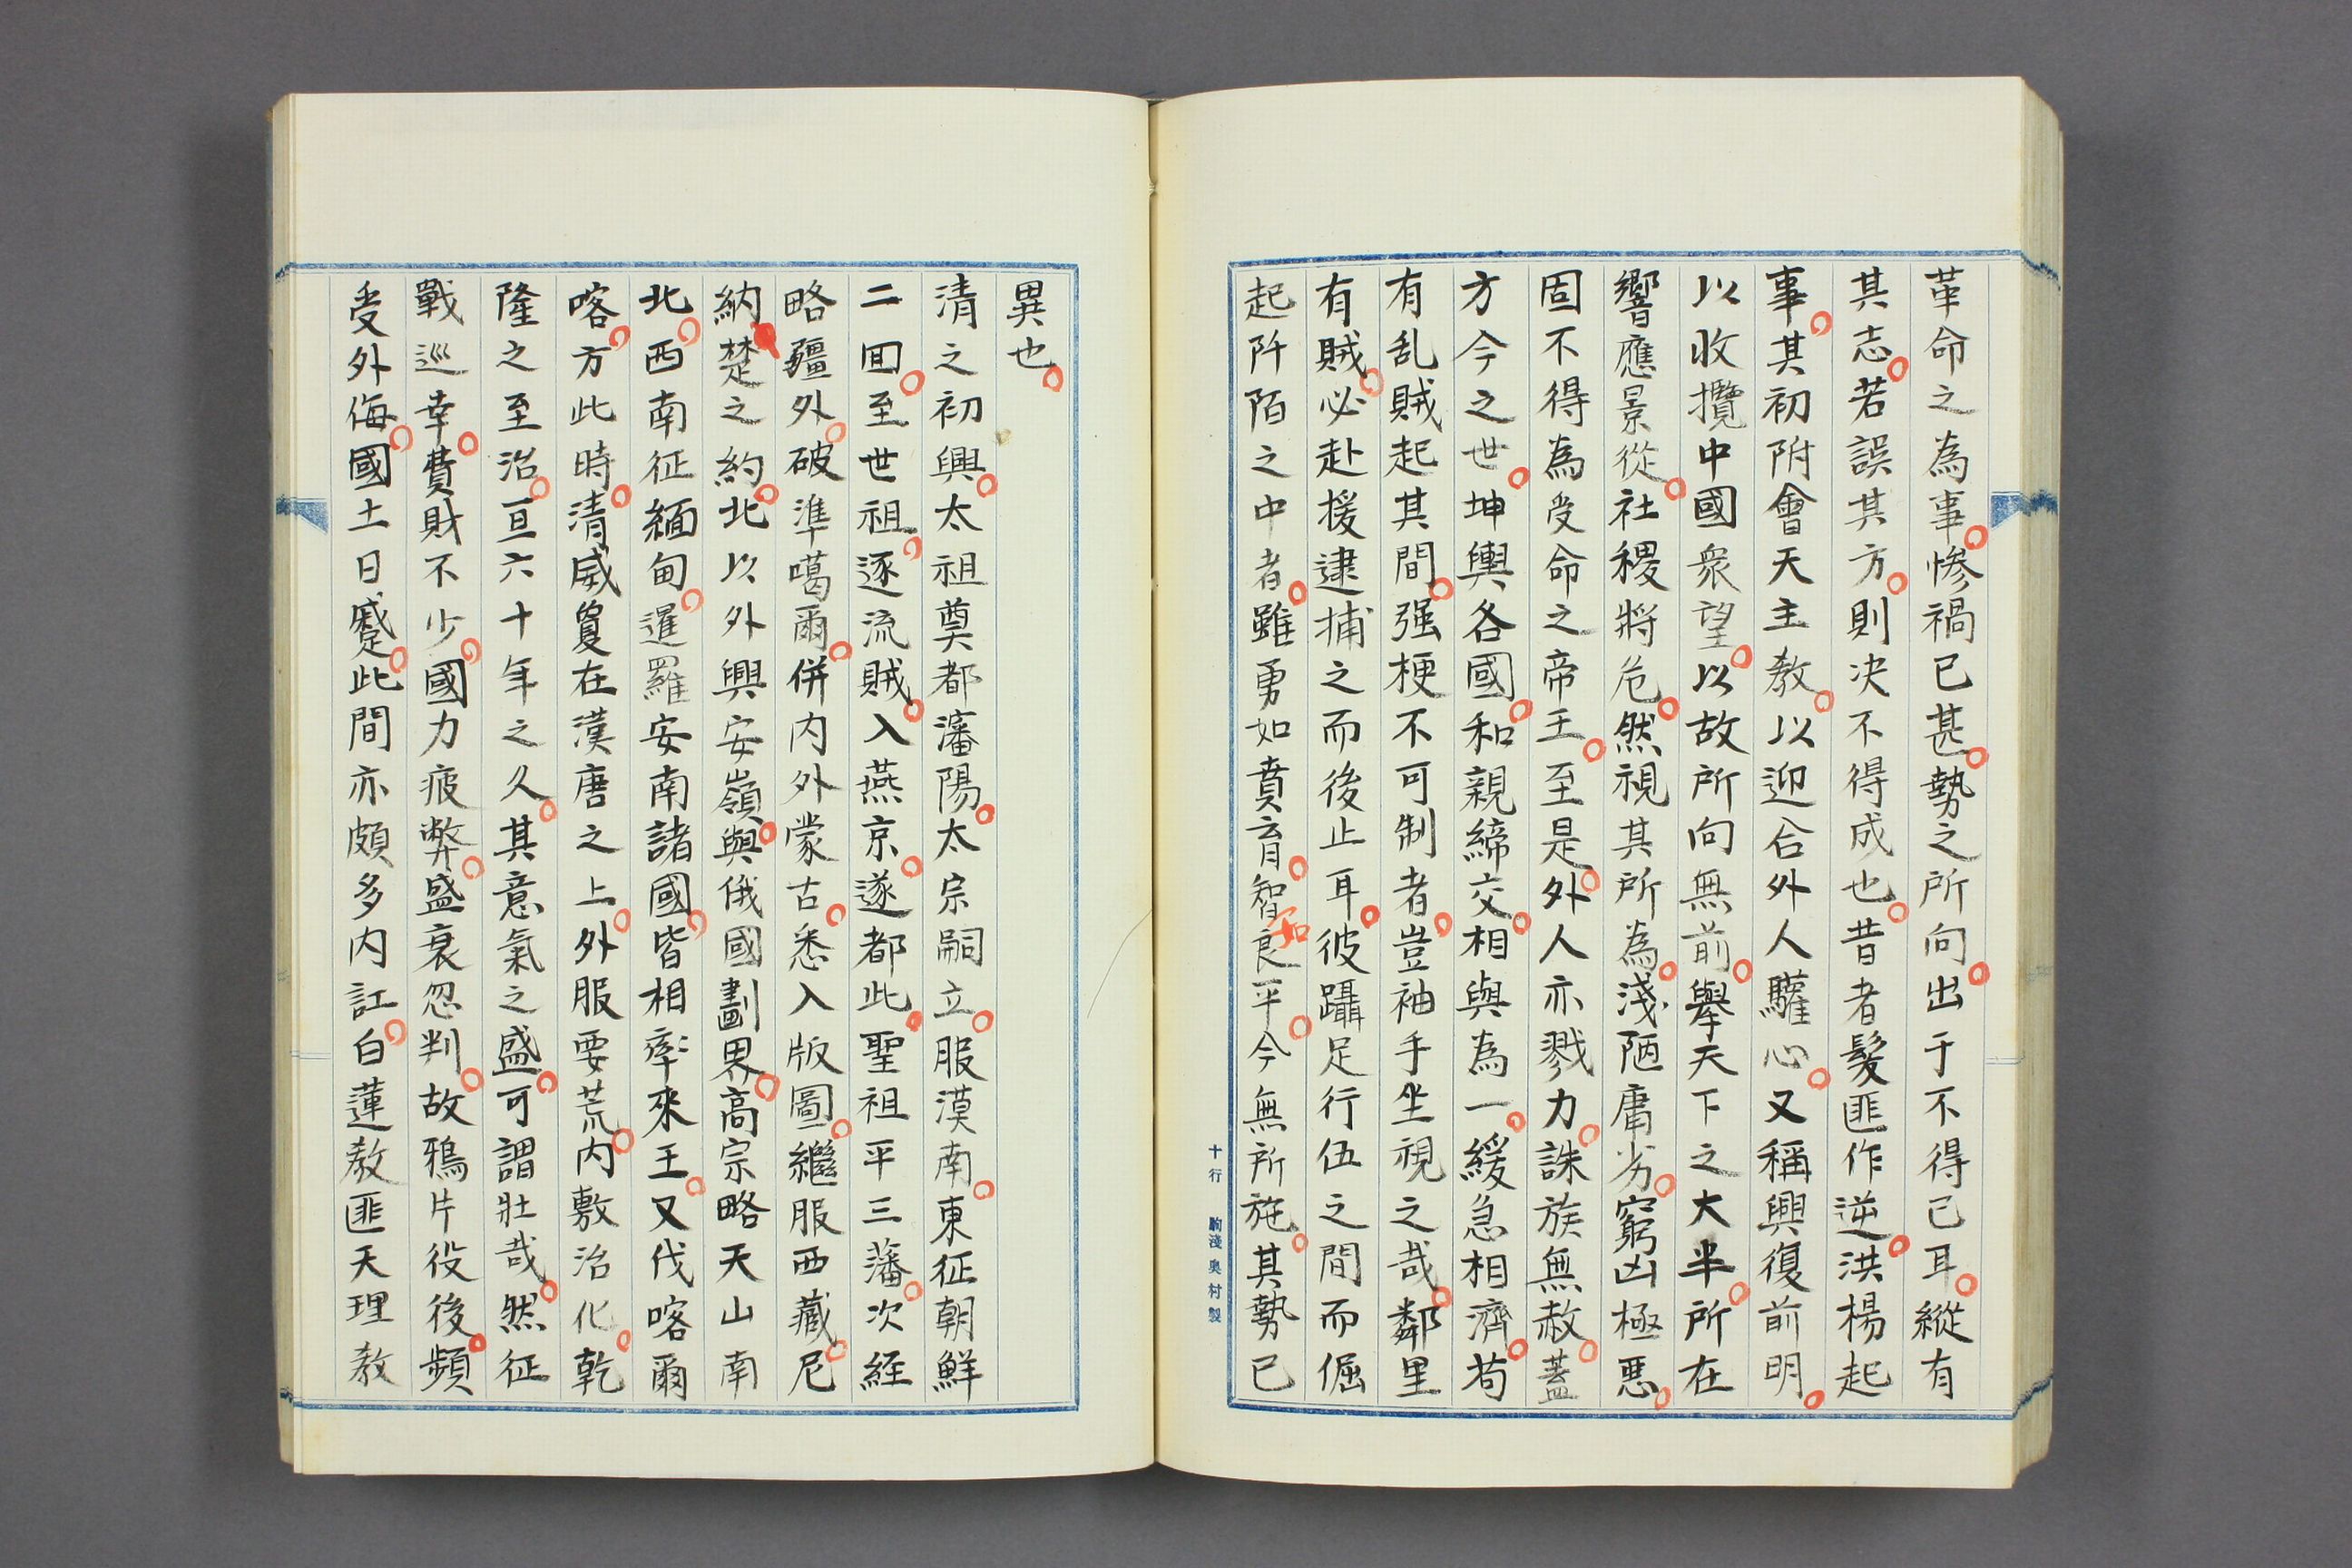 革命之為事。惨禍已甚。勢之所向。出于不得已耳。縦有
其志。若誤其方。則決不得成也。昔者髮匪作逆。洪楊起
事。其初附會天主教。以迎合外人驩心。又稱興復前明。
以收攬中國衆望。以故所向無前。擧天下之大半。所在
響應景從。社稷將危。然視其所為。淺陋庸劣。窮凶極悪。
固不得為受命之帝王。至是。外人亦戮力。誅族無赦。蓋
方今之世。坤輿各國。和親締交。相與為一。緩急相濟。苟
有乱賊起其間。强梗不可制者。豈袖手坐視之哉。鄰里
有賊。必赴援逮捕之而後止耳。彼躡足行伍之間而倔
起阡陌之中者。雖勇如賁育。智如良平。今無所施。其勢已
十行 駒淺奥村製
異也。
清之初興。太祖奠都瀋陽。太宗嗣立。服漠南。東征朝鮮
二回。至世祖。逐流賊。入燕京。遂都此。聖祖平三藩。次経
略疆外。破準噶爾。併内外蒙古。悉入版圖。繼服西藏。尼
納楚之約。北以外興安嶺。與俄國劃界。高宗略天山南
北。西南征緬甸。暹羅安南諸國。皆相率來王。又伐喀爾
喀。方此時。清威夐在漢唐之上。外服要荒。内敷治化。乾
隆之至治。亘六十年之久。其意氣之盛。可謂壯哉。然征
戰巡幸。費財不少。國力疲弊。盛衰忽判。故鴉片役後。頻
受外侮。國土日蹙。此間亦頗多内訌。白蓮教匪天理教